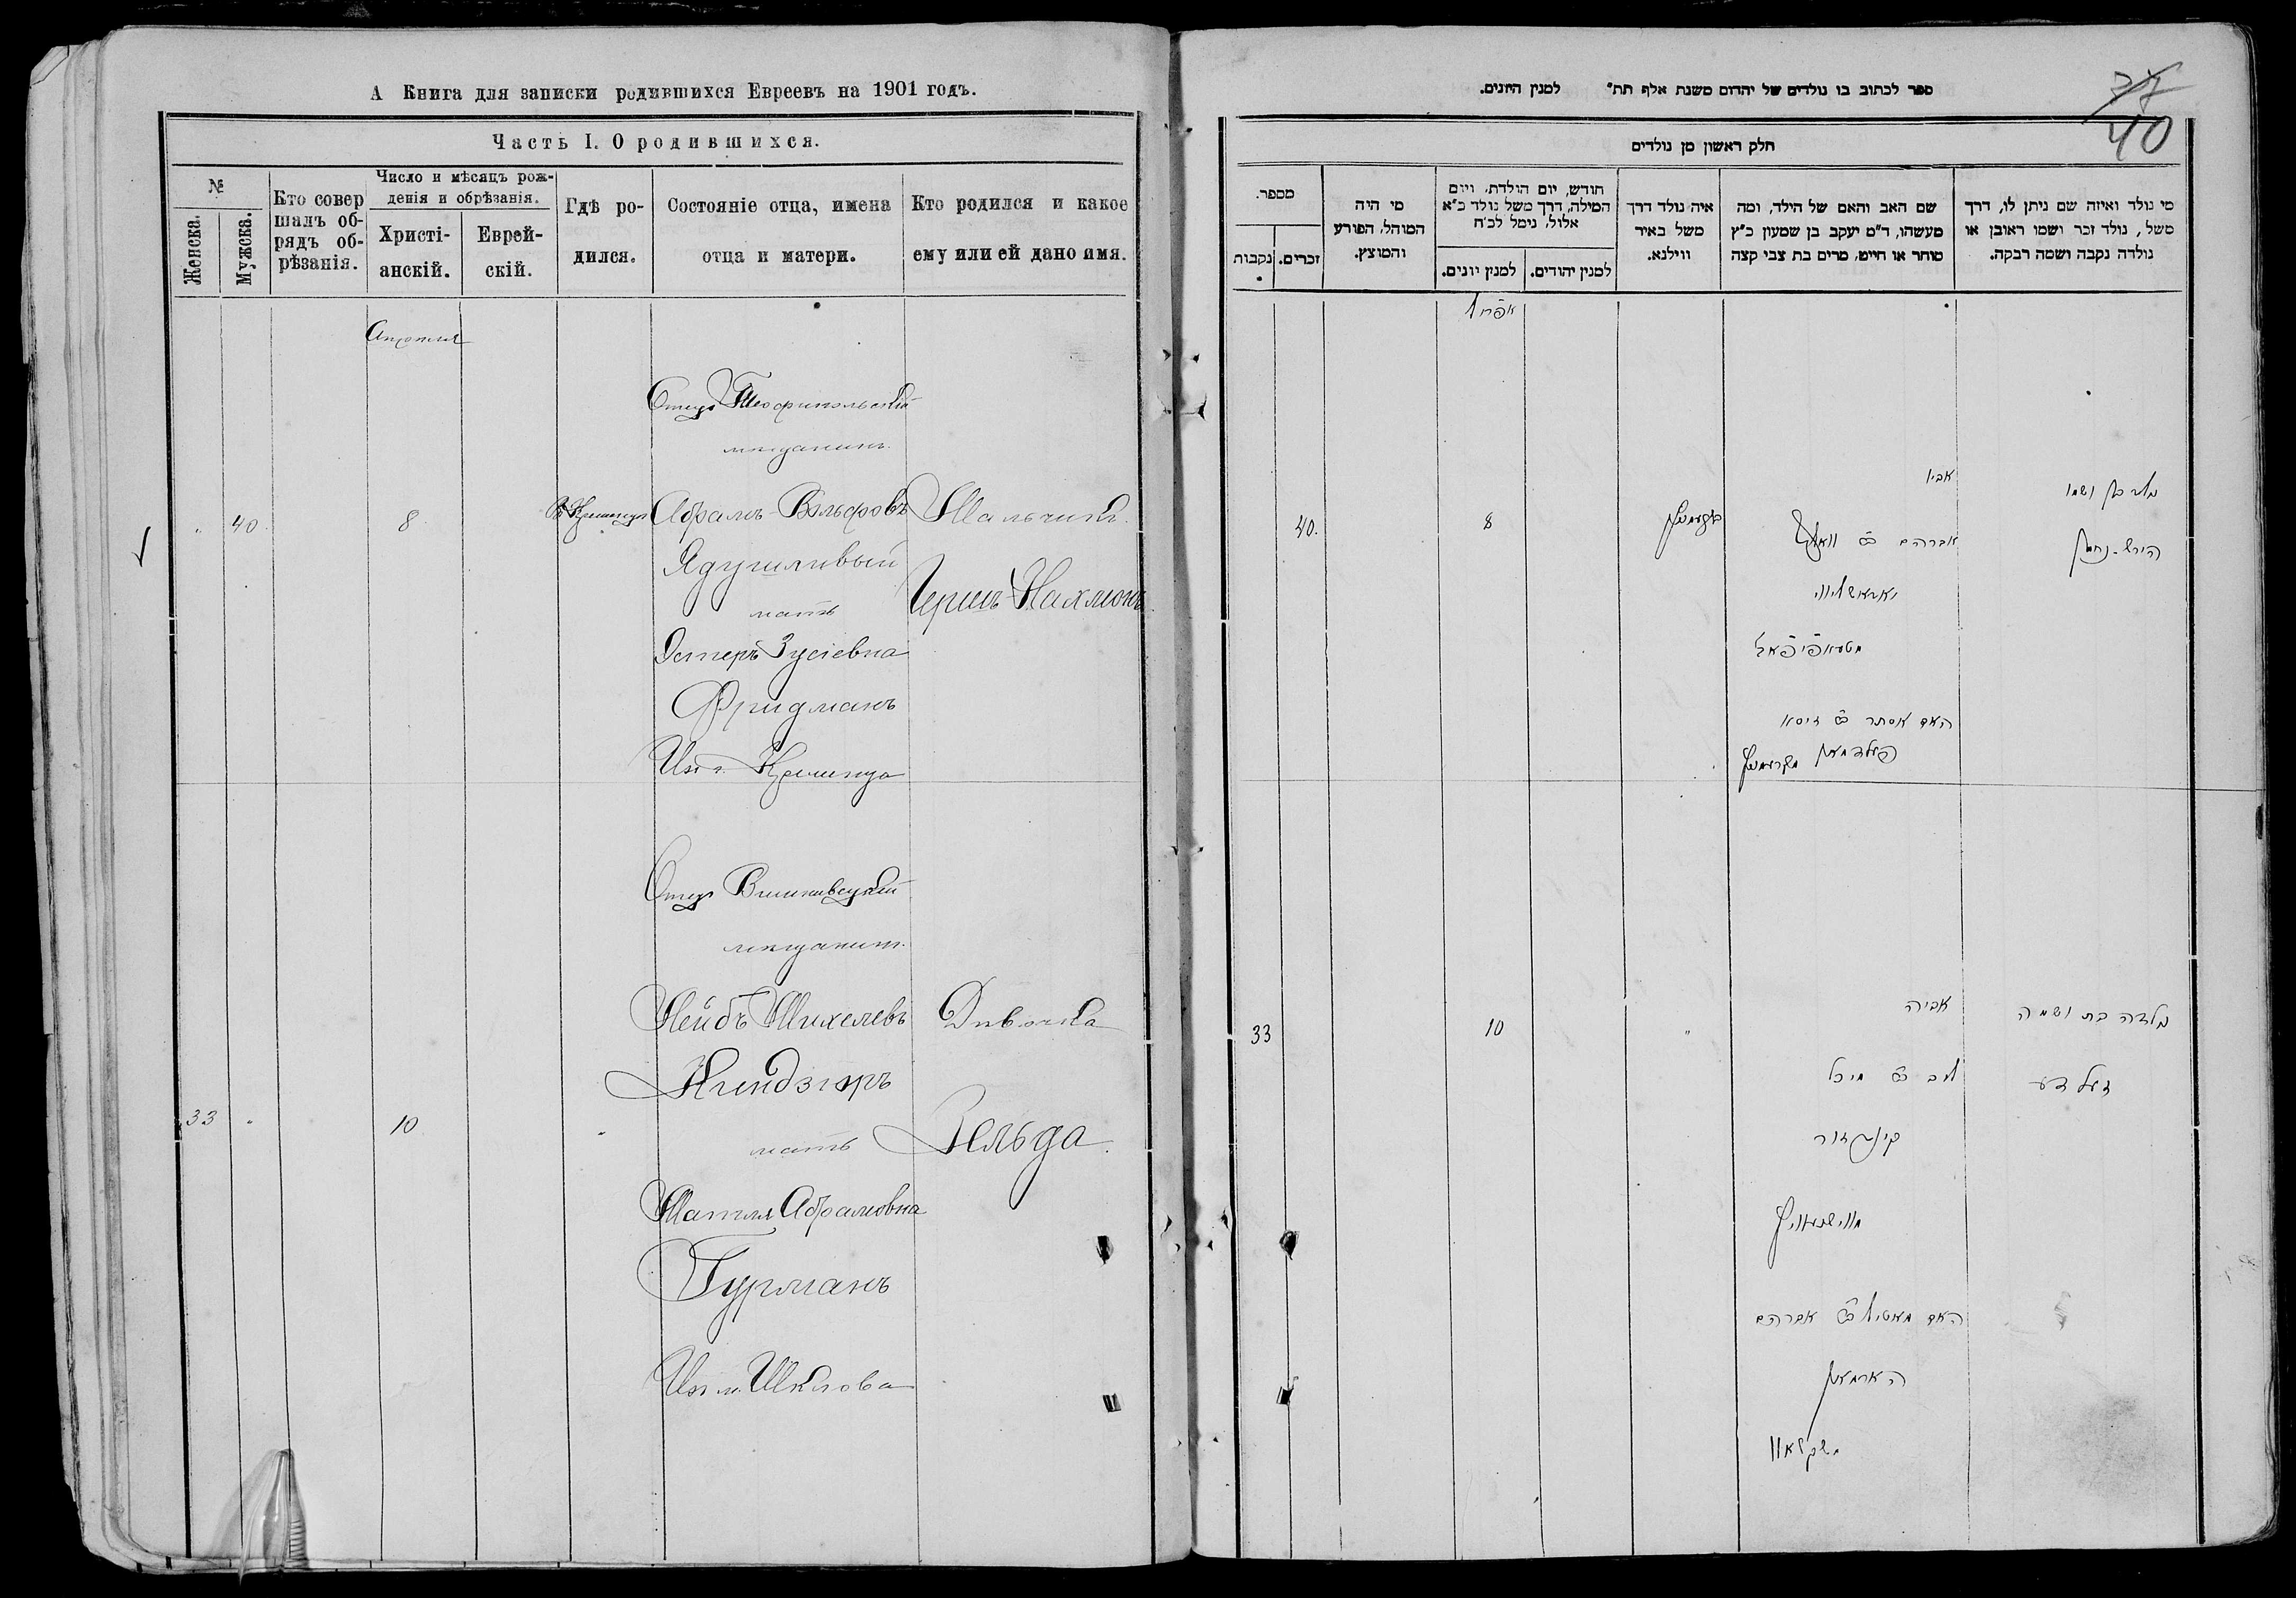 А Книга для записки родившихся Евреевъ на 1901 годъ.
Часть I. О родившихся.
№
Женска.
Мужска.
Кто совер
шалъ об-
рядъ об-
рѣзанія.
Число и мѣсяцъ рож-
денія и обрѣзанія.
Христі-
анскій.
Еврей-
скій.
Гдѣ ро-
дился.
Состояніе отца, имена
отца и матери.
Кто родился и какое
ему или ей дано имя.
Апрѣля
Отецъ
мѣщанинъ
40
8
Абрамъ Вольфовъ
Мальчикъ
мать
Гершъ Нахмонъ
Эстеръ Зусіевна
Фридманъ
Изъ г. Кременца
Отецъ Вишневецкій
мѣщанинъ.
Лейбъ Михелевъ
Дѣвочка
33
10
мать
Зельда.
Матля Абрамовна
Гурманъ
Изъ м. Шклова
ספר לכתוב בו נולדים של יהדום משנת אלף תת״ למנין היונים.
37
40
חלק ראשון מן נולדים
מספר.
נקבות
זכרים.
מי היה
המוהל, הפורע
והמוצץ.
חודש, יום הולדת, ויום
המילה, דרך משל נולד כ״א
אלול, נימל לכ״ח
למנין יונים.
למנין יהודים.
איה נולד דרך
משל באיר
ווילנא.
שם האב והאם של הילד, ומה
מעשהו, ד״מ יעקב בן שמעון כ״ץ
סוחר או חייט, מרים בת צבי קצה
מי נולד ואיזה שם ניתן לו, דרך
משל, נולד זכר ושמו ראובן או
נולדה נקבה ושמה רבקה.
אפריל
40.
8
אביו
נולד בן ושמו
הירש-נחמן
האם אסתר זיסא
33
10
אביה
נולדה בת ושמה
ליב מיכל
זעלדע
האם מאטיל אברהם
הארמאן
משקלאוו